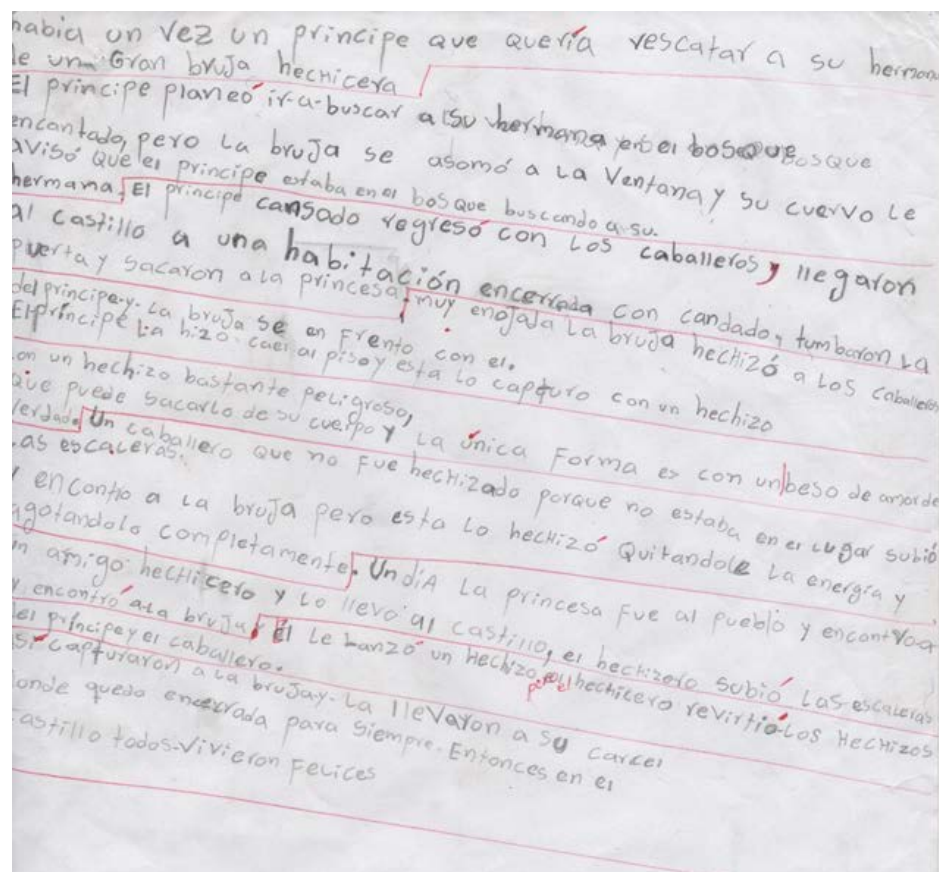 habia un vez un principe que quería rescatar a su hermana
de un Gran bruja hechicera
El principe planeó ir-a-buscar a su hermana en el bosque bosque
encantado, pero La bruja se asomó a La Ventana y su cuervo Le
avisó que el principe estaba en el bosque buscando a su.
hermana. El principe cansado regresó con Los caballeros, llegaron
al castillo a una habitación encerrada con candado, tumbaron La
puerta y sacaron a la princesa, muy enojada La bruja hechizó a Los caballeros
del principe.y. La bruja se en Frento con el.
El príncipe La hizo. caer al piso y esta lo capturo con un hechizo
con un hechizo bastante peligroso,
que puede sacarlo de su cuerpo y La única Forma es con un beso de amor de
Verdad. Un caballero que no fue hechizado porque no estaba en el Lugar subió
Las escaleras.
y encontro a La bruja pero esta Lo hechizó Quitandole La energía y
agotandolo completamente. Un día La princesa Fue al pueblo y encontró a
un amigo hechicero y Lo llevó al castillo, el hechizero subió Las escaleras
y encontró a La bruja, Él Le Lanzó un Hechizo, pero el hechicero revirtió Los Hechizos
del príncipe y el caballero.
Así capturaron a La bruja y. La llevaron a su carcel
donde quedo encerrada para siempre. Entonces en el
castillo todos-Vivieron Felices